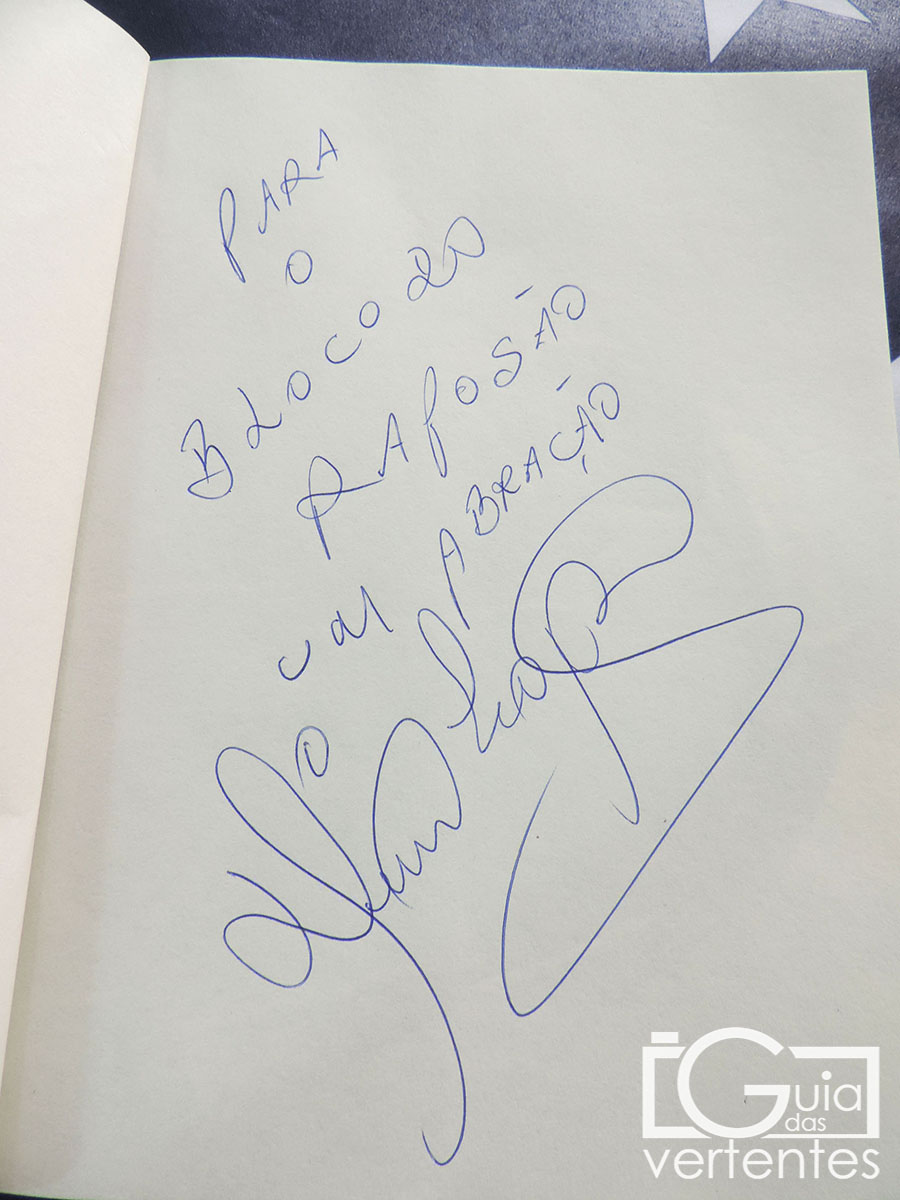 PARA
O
BLOCO DO
RAPOSÃO
UM ABRAÇÃO
Guia
das
vertentes